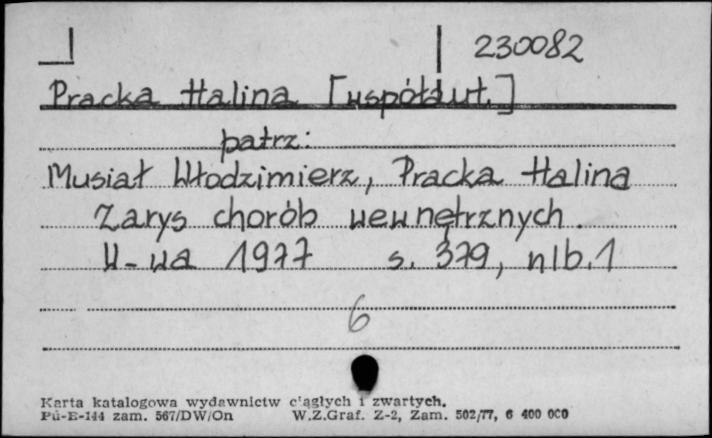 230082
Pracka Halina [współaut.]
patrz:
Musiał Włodzimierz, Pracka Halina
Zarys chorób wewnętrznych.
W-wa 1977 s. 379, nlb. 1
6
Karta katalogowa wydawnictw ciągłych i zwartych.
Pu-E-144 zam. 567/DW/On W.Z.Graf. Z-2, Zam. 502/77, 6 400 000